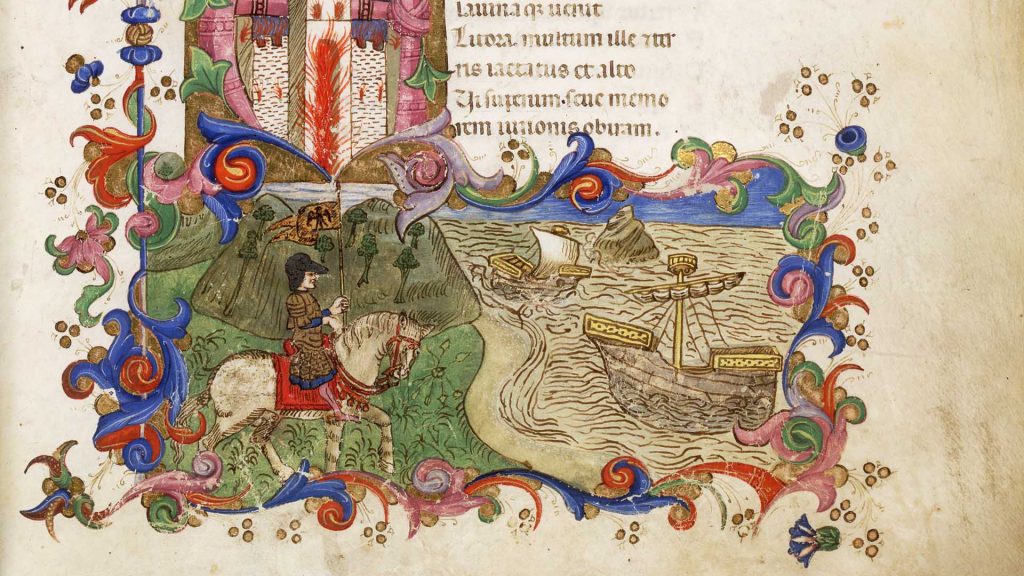 lauina qꝫ uenit
Litora. multum ille et ter
ris iactatus et alto
Vi superum. seue memo
rem iunonis obiram.